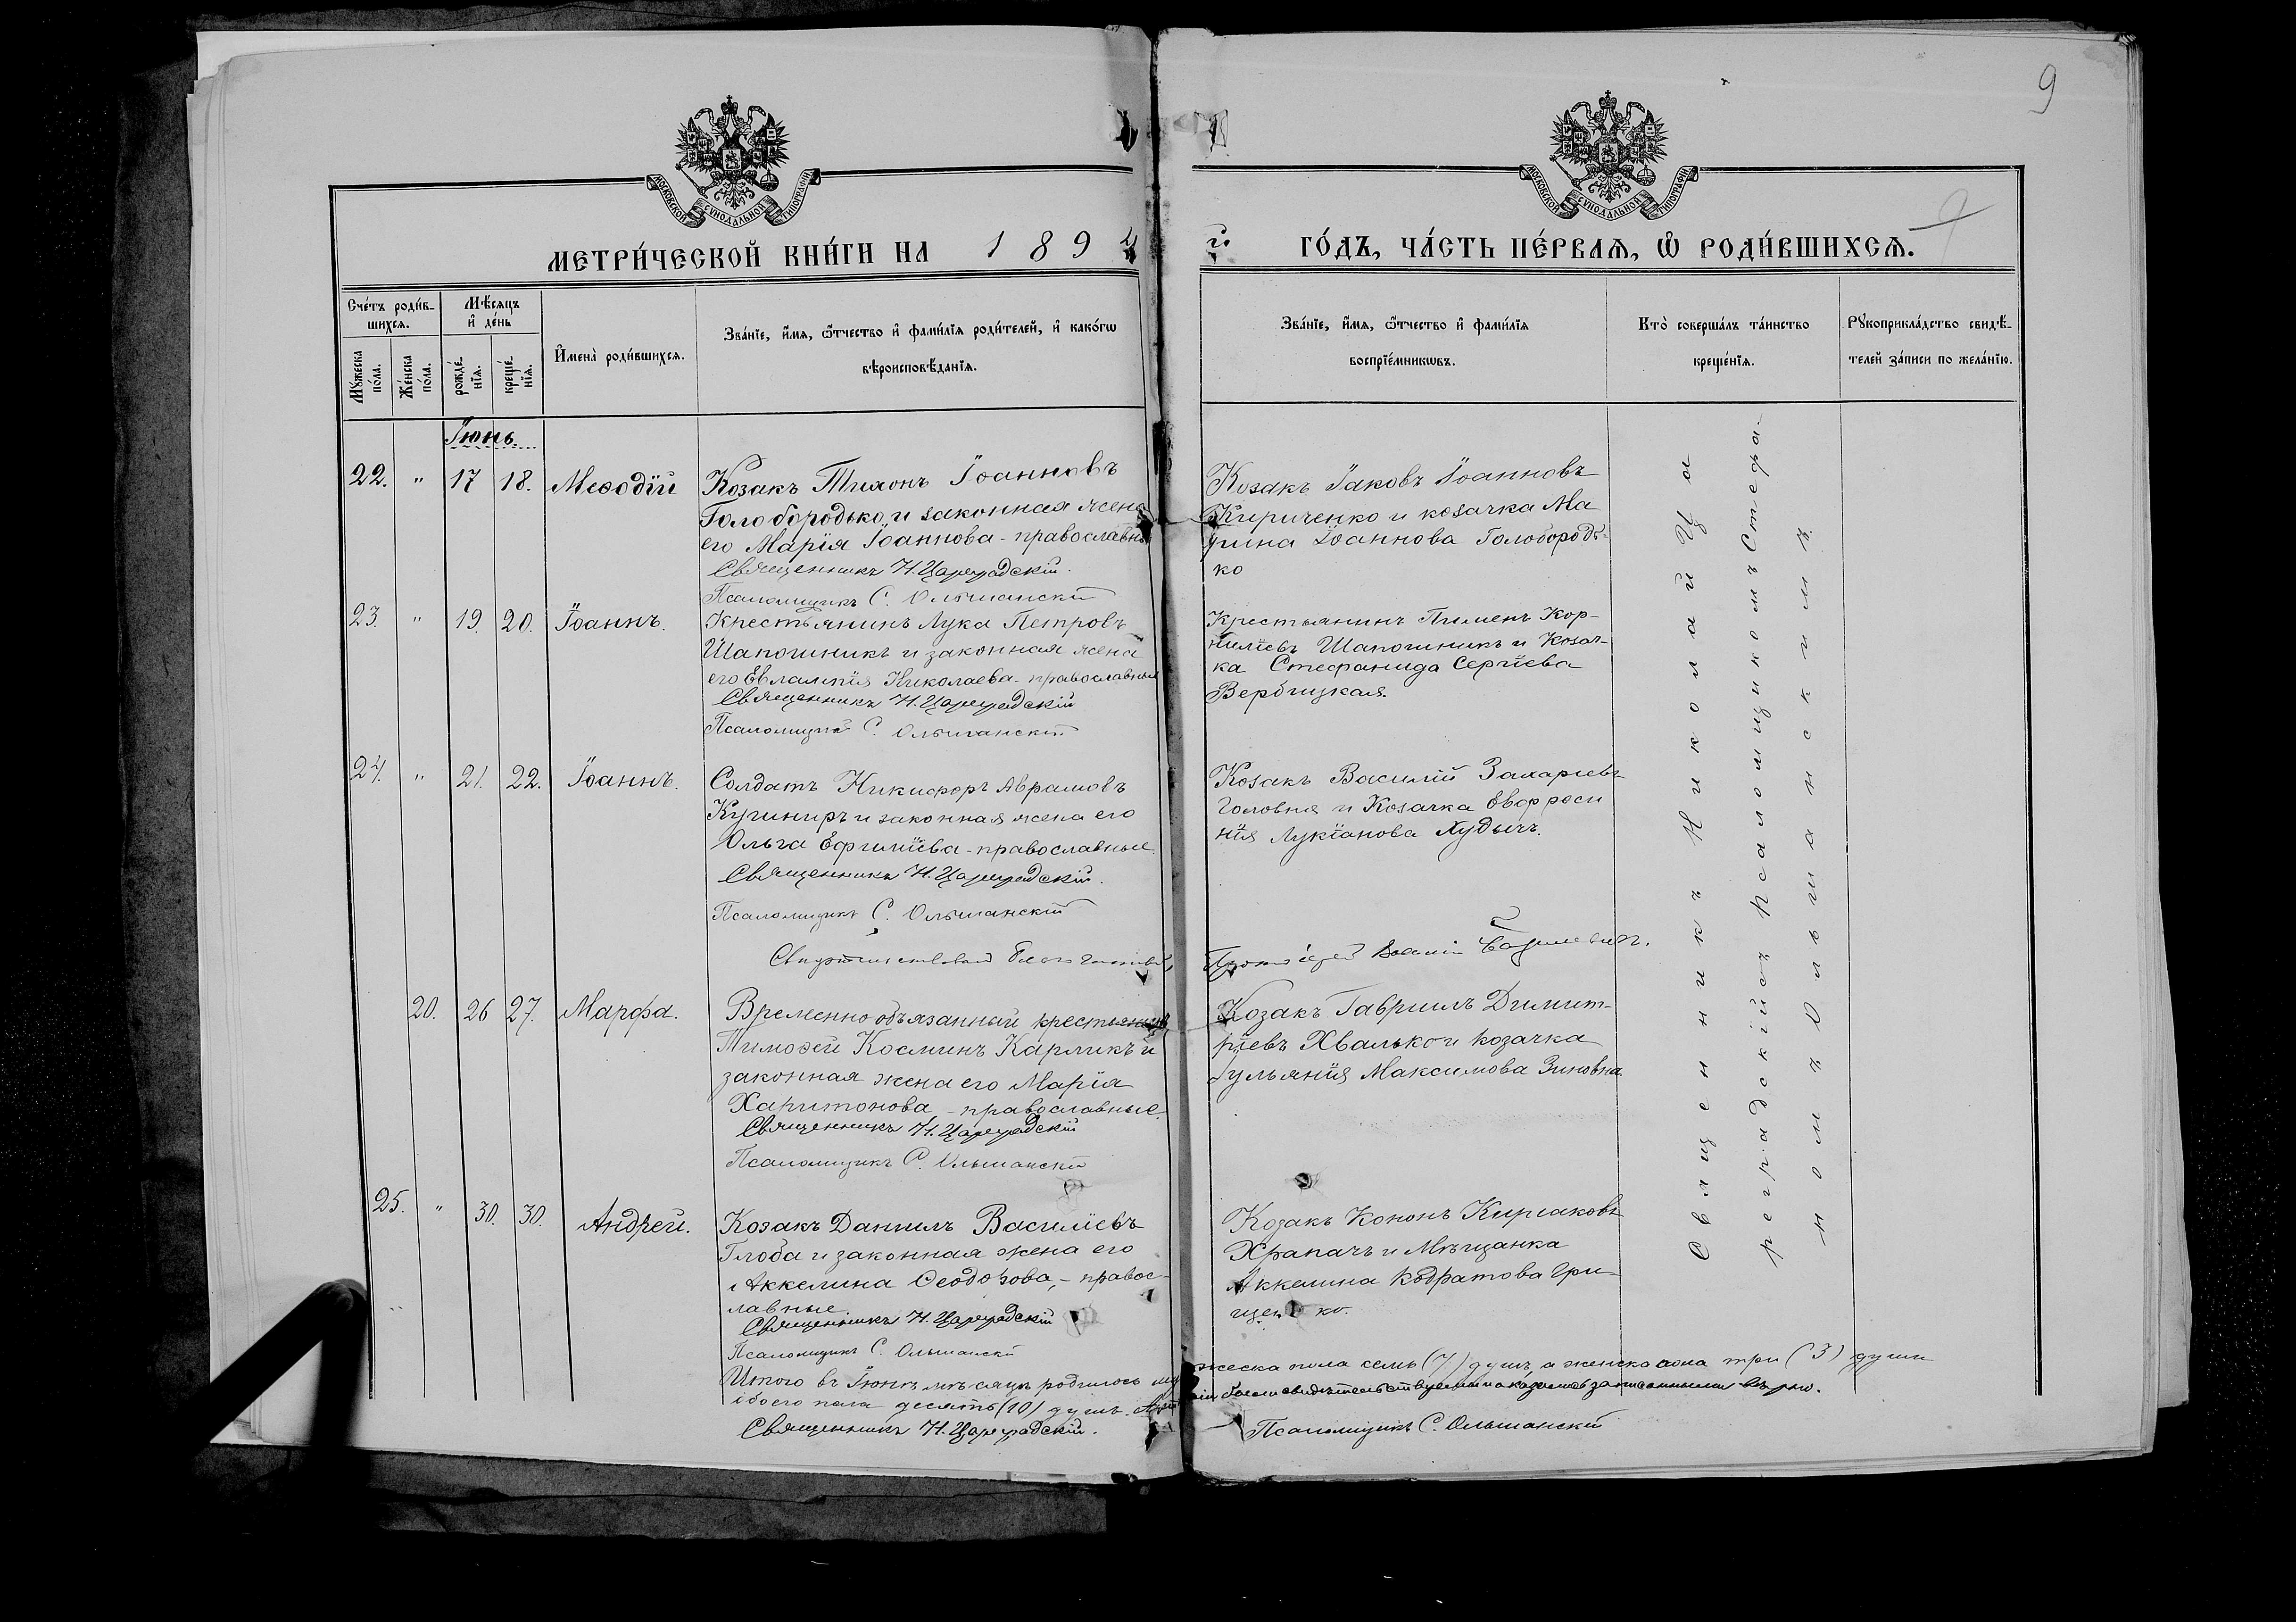 9
МОСКОВСКОЙ СѴНОДАЛЬНОЙ ТИПОГРАФІИ
МОСКОВСКОЙ СѴНОДАЛЬНОЙ ТИПОГРАФІИ
МЕТРИ́ЧЕСКОЙ КНИ́ГИ НА 1894 й ГО́ДЪ, ЧА́СТЬ ПЕ́РВАЯ, Ѡ҆ РОДИ́ВШИХСЯ.
Сче́тъ роди́в-
шихся.
Мꙋ́жеска по́ла.
Же́нска по́ла.
Мѣ́сяцъ
и҆ де́нь
рожде́-
нїя.
креще́-
нїя.
И҆мена̀ роди́вшихся.
Зва́нїе, и҆́мя, ѻ҆́тчество и҆ фами́лїя роди́телей, и҆ како́гѡ
вѣроисповѣ́данїя.
Зва́нїе, и҆́мя, ѻ҆́тчество и҆ фами́лїя
воспрїе́мникѡвъ.
Кто̀ соверша́лъ та́инство
креще́нїя.
Рꙋкоприкла́дство свидѣ́-
телей за́писи по жела́нїю.
Іюнь.
22. " 17 18. Меѳодій
Козакъ Тихонъ Іоанновъ
Голобородько и законная жена
его Марія Іоаннова - православные
Священникъ Н. Цареградскій.
Псаломщикъ С. Ольшанскій
Козакъ Іаковъ Іоанновъ
Кириченко и козачка Ма
рина Іоаннова Голобородь-
ко
23. " 19. 20. Іоаннъ.
Крестьянинъ Лука Петровъ
Шапошникъ и законная жена
его Евлампія Николаева - православные
Священникъ Н. Цареградскій
Псаломщикъ С. Ольшанскій
Крестьянинъ Пименъ Кор-
нилієвъ Шапошникъ и Козач-
ка Стефанида Сергіева
Вербицкая.
24. " 21. 22. Іоаннъ.
Солдатъ Никифоръ Аврамовъ
Кушниръ и законная жена его
Ольга Ефиміева - православные.
Священникъ Н. Цареградскій.
Псаломщикъ С. Ольшанскій
Козакъ Василій Захаріевъ
Головня и Козачка Евфроси
нія Лукіанова Худычъ.
Свидѣтельствовалъ Благочинный,
Протоіерей
20. 26 27. Марфа.
Временно обязанный крестьянинъ
Тимоѳей Косминъ Карликъ и
законная жена его Марія
Харитонова - православные.
Священникъ Н. Цареградскій
Псаломщикъ С. Ольшанскій
Козакъ Гавриилъ Димит-
ріевъ Хвалько и козачка
Іульянія Максимова Зиновна
25. " 30. 30. Андрей.
Козакъ Даниилъ Василіевъ
Глоба и законная жена его
Аккелина Ѳеодорова, - правос-
лавные
Священникъ Н. Цареградскій
Псаломщикъ С. Ольшанскій
Козакъ Кононъ Киріаковъ
Храпачъ и Мѣщанка
Аккелина Кодратова Гри-
щенко.
Священникъ Николай Ца
реградскій съ псаломщикомъ Стефа-
номъ Ольшанскимъ.
Итого въ Іюнѣ мѣсяцѣ родилось мужеска пола семь (7) душъ, а женска пола три (3) души
обоего пола десять (10) душъ. свидѣтельствуемы и оказались записанными вѣрно.
Священникъ Н. Цареградскій.
Псаломщикъ С. Ольшанскій